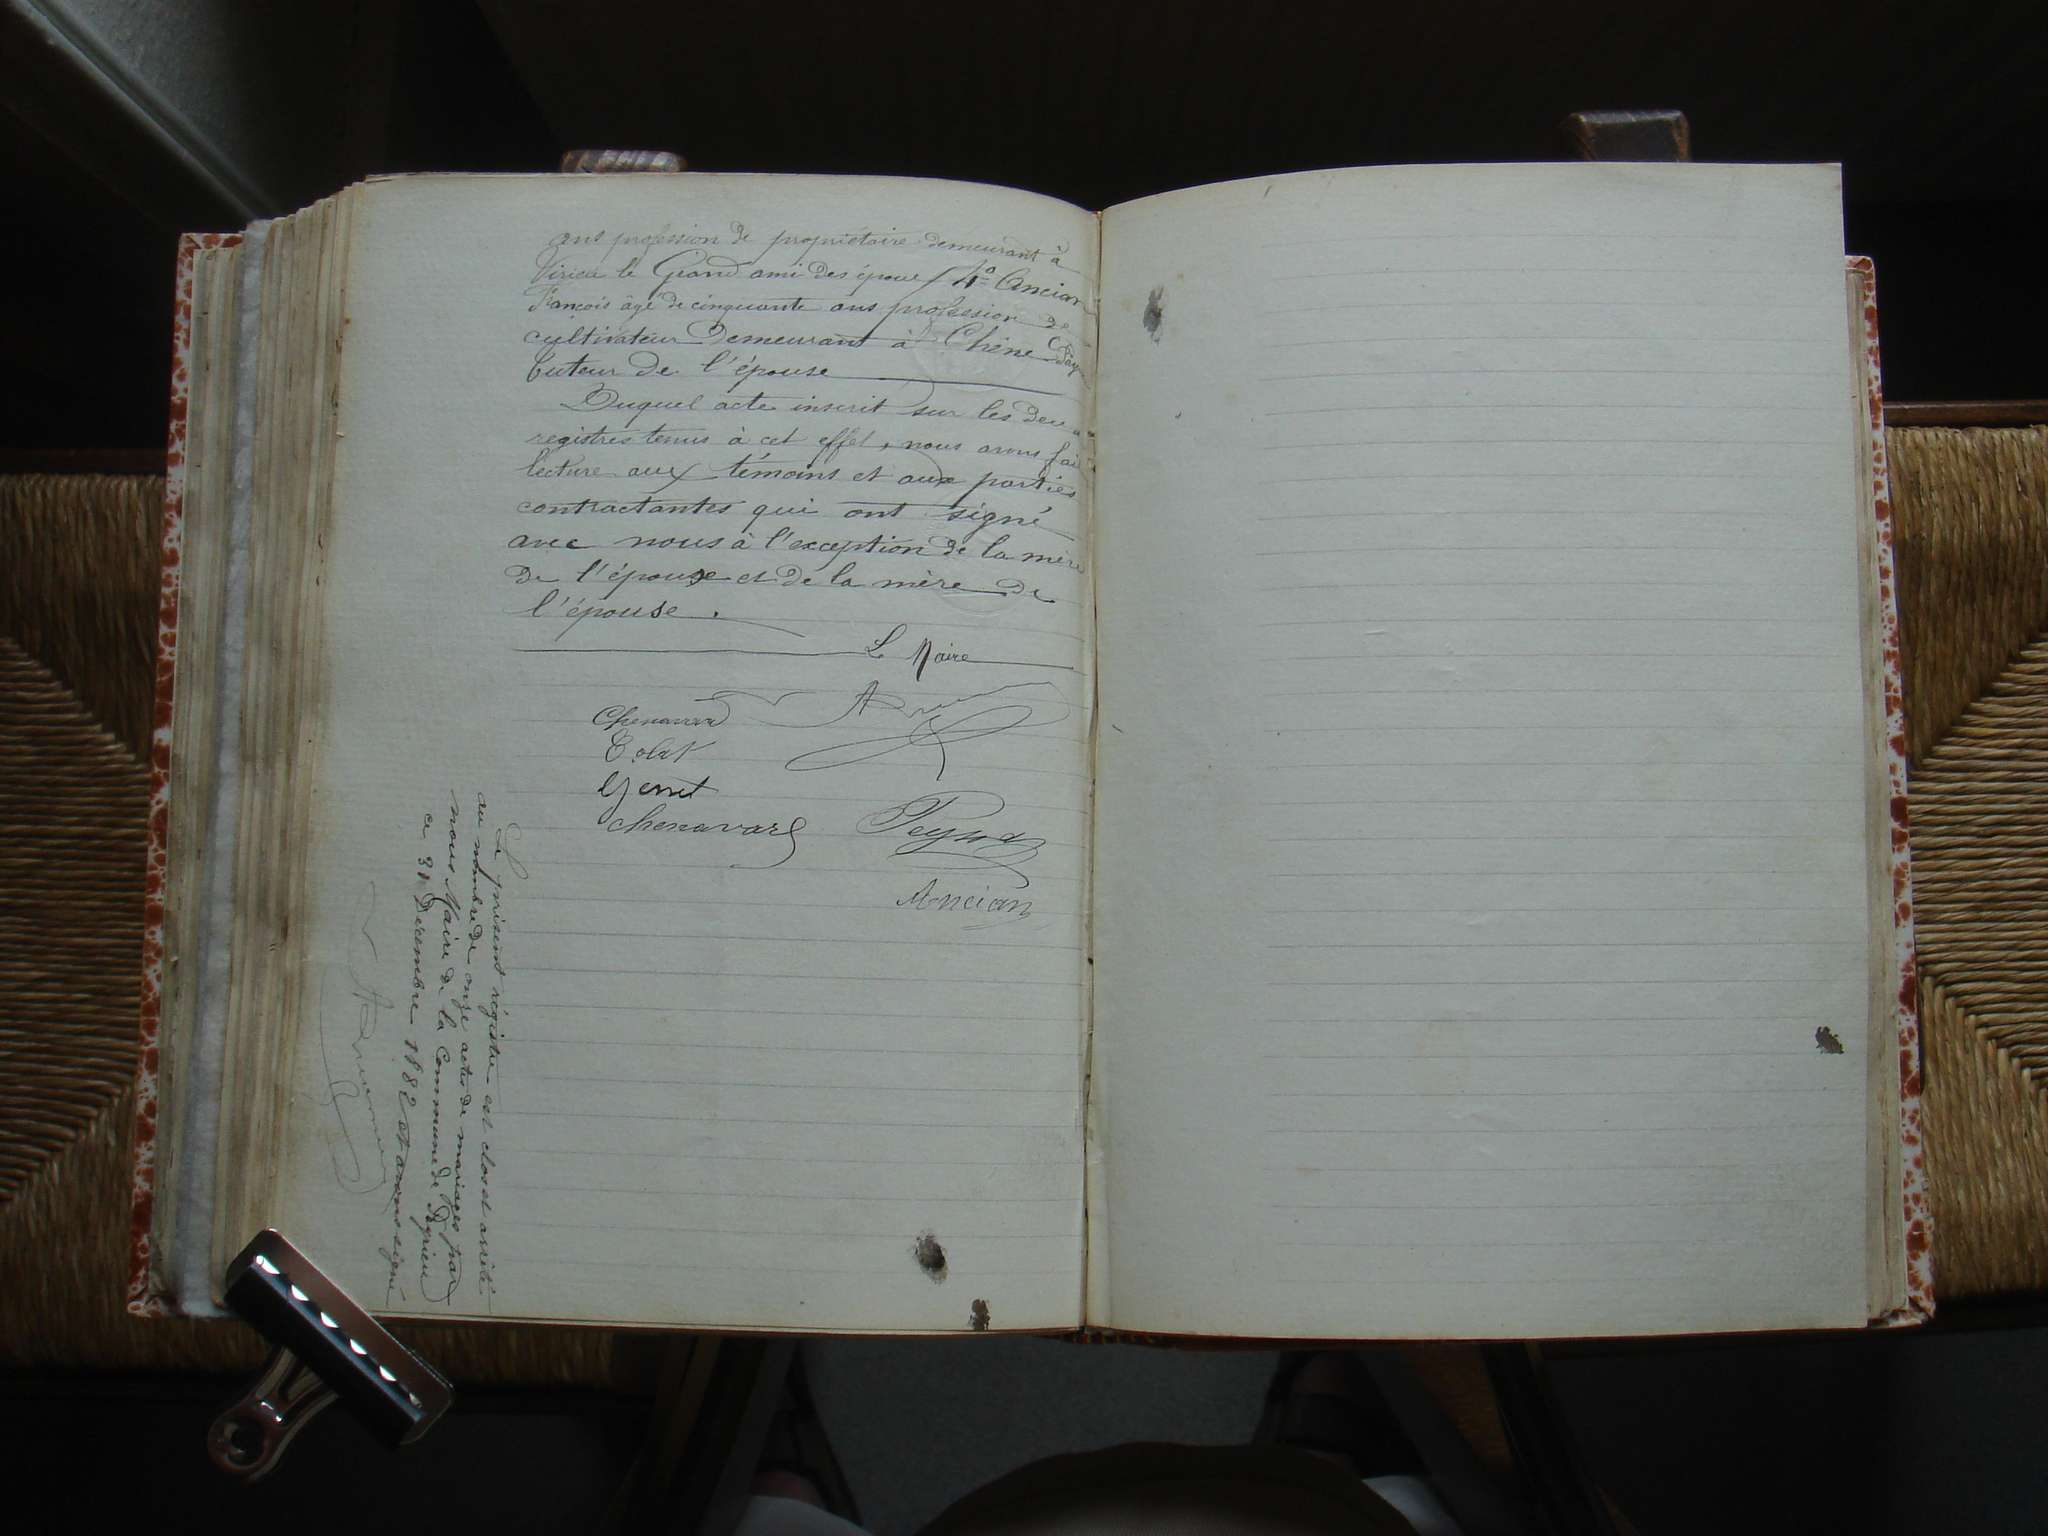 ans profession de propriétaire demeurant à
Virieu le Grand ami des époux / 4° Ancian
François âgé de cinquante ans profession de
cultivateur demeurant à Chêne
tuteur de l'épouse
Duquel acte inscrit sur les deux
registres tenus à cet effet, nous avons fait
lecture aux témoins et aux parties
contractantes qui ont signé
avec nous à l'exception de la mère
de l'épouxe et de la mère de
l'épouse.
Le Maire
Chenavard
Genet
Chenavard
Ancian
Le présent régistre est clos et arrêté
au nombre de onze actes de mariages par
nous Maire de la Commune de Peyrieu
ce 31 Décembre 1882 et avons signé